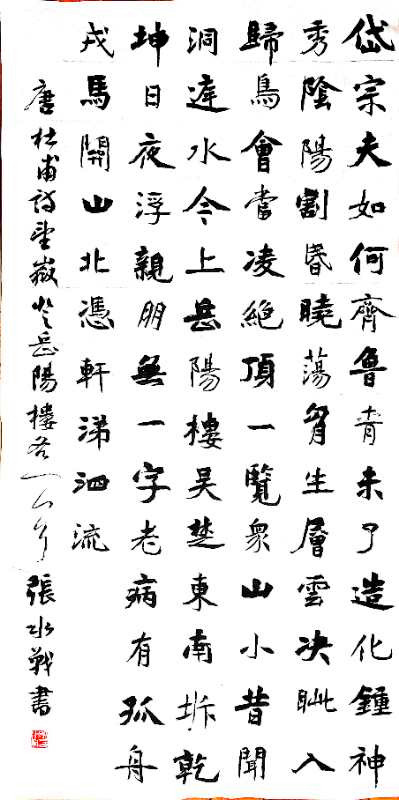 岱宗夫如何齊魯青未了造化鍾神
秀陰陽割昬曉蕩胷生層雲决眦入
歸鳥會當凌絕頂一覽衆山小昔聞
洞庭水今上岳陽樓吴楚東南坼乾
坤日夜浮親朋無一字老病有孤舟
戎馬關山北憑軒涕泗流
唐杜甫詩望嶽登岳陽樓各一首 張水戰書